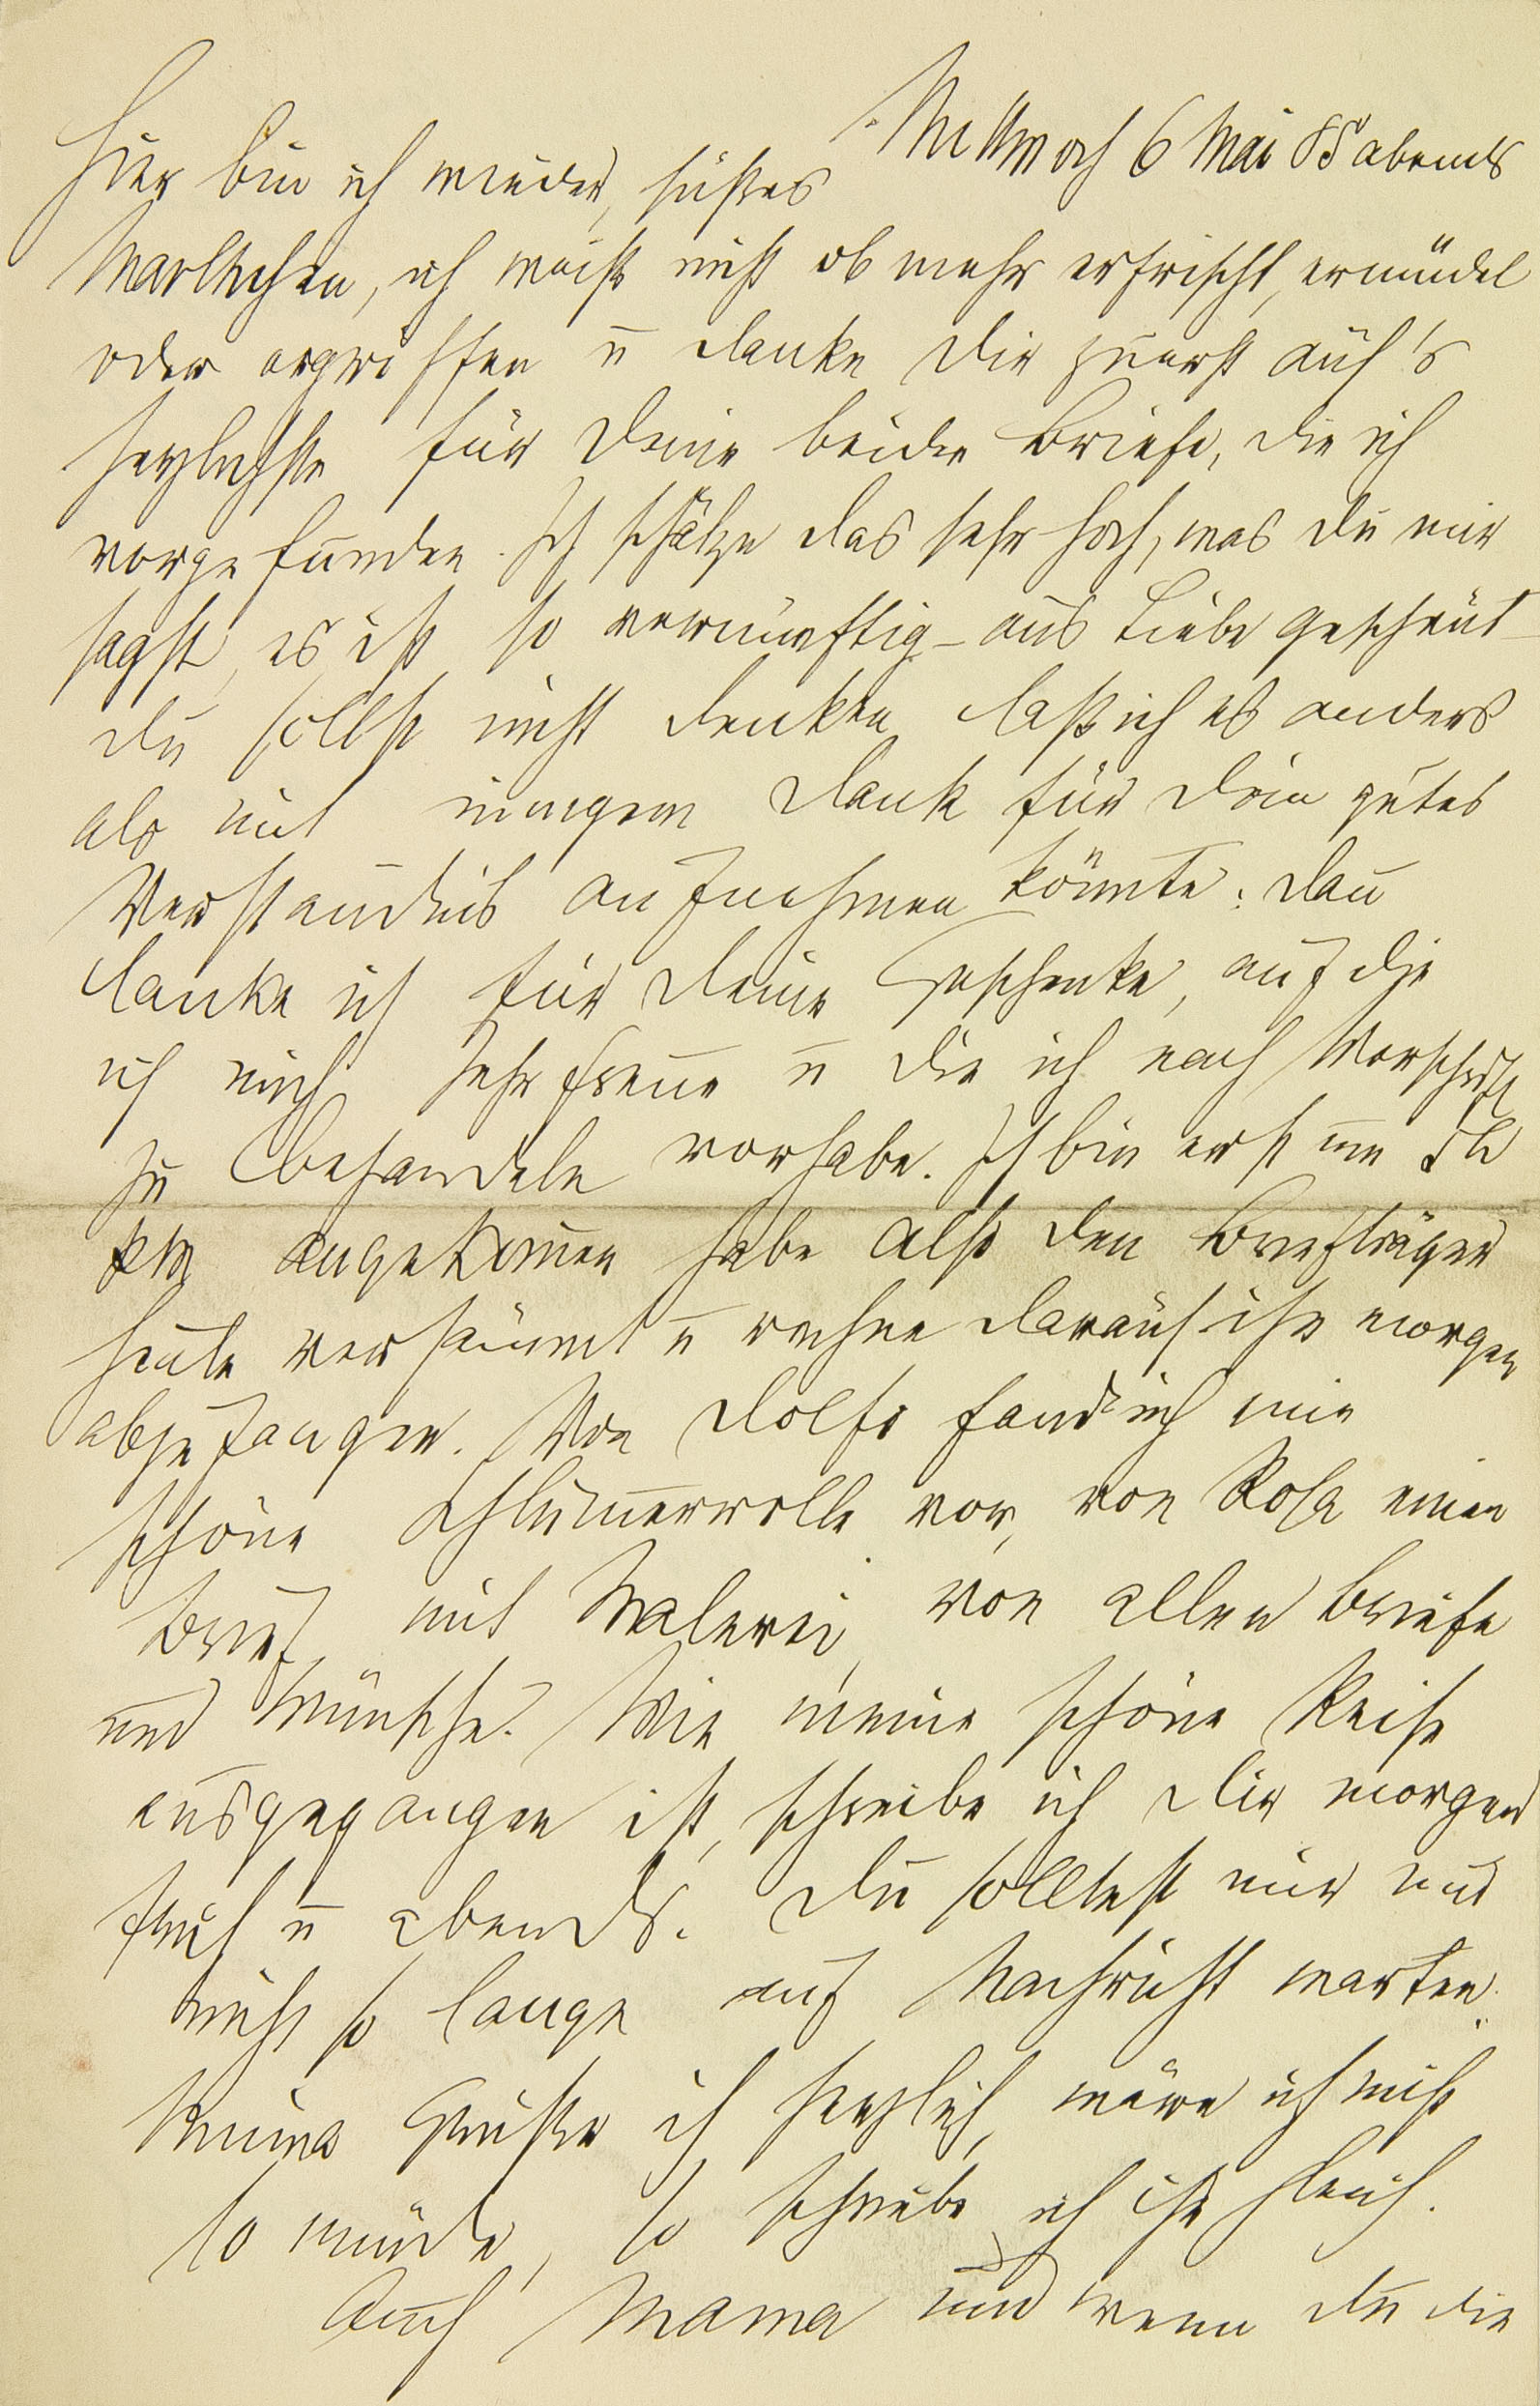 Mittwoch 6 Mai 85 abends
Hier bin ich wieder, süßes
Marthchen, ich weiß nicht ob mehr erfrischt, ermüdet
oder ergriffen u danke Dir zuerst auf's
herzlichste für Deine beiden Briefe, die ich
vorgefunden. Ich schätze das sehr hoch, was Du mir
sagst, es ist so vernünftig – aus Liebe gescheut –
Du sollst nicht denken daß ich es anders
als mit innigem Dank für Dein gutes
Verständnis aufnehmen könnte. Dan̄
danke ich für Deine Geschenke, auf die
ich mich sehr freue u die ich nach Vorschrift
zu behandeln vorhabe. Ich bin erst um
angekom̄en habe also den Briefträger
heute versäumt u rechne darauf ihn morgen
abzufangen. Von Dolfi fand ich eine
schöne Schlum̄errolle vor, von Rosa einen
Brief mit Malerei, von allen Briefe
und Wünsche. Wie meine schöne Reise
ausgegangen ist, schreibe ich Dir morgen
früh u abends. Du solltest mir nur
nicht so lange auf Nachricht warten.
Minna grüße ich herzlich, wäre ich nicht
so müde, so schriebe ich ihr gleich.
Auch Mama und wenn Du die